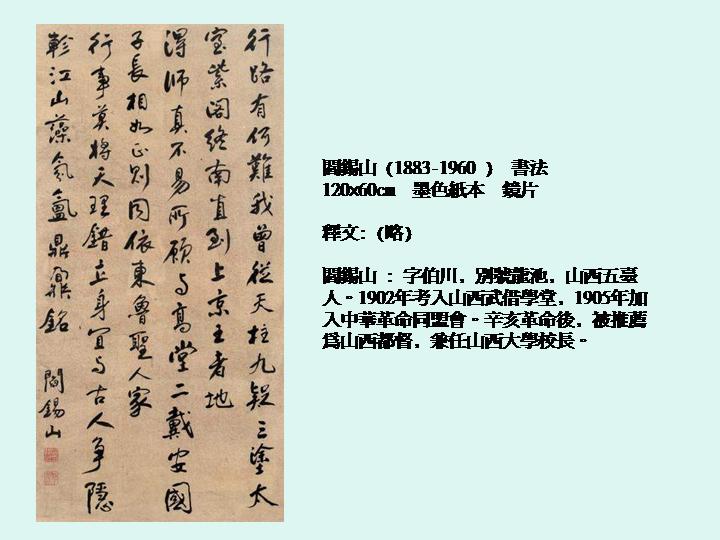 行路有何難我曾從天柱九疑三塗太
室紫閣終南直到上京王者地
得師真不易所願与高堂二戴安國
子長相如正則同依東魯聖人家
行事莫將天理錯立身宜与古人争隱
軫江山藻氛氳鼎鼐銘 閻錫山
閻錫山（1883-1960 ） 書法
120x60cm 墨色紙本 鏡片
釋文：（略）
閻錫山 ：字伯川，別號龍池，山西五臺
人。1902年考入山西武僃學堂，1905年加
入中華革命同盟會。辛亥革命後，被推薦
爲山西都督，兼任山西大學校長。